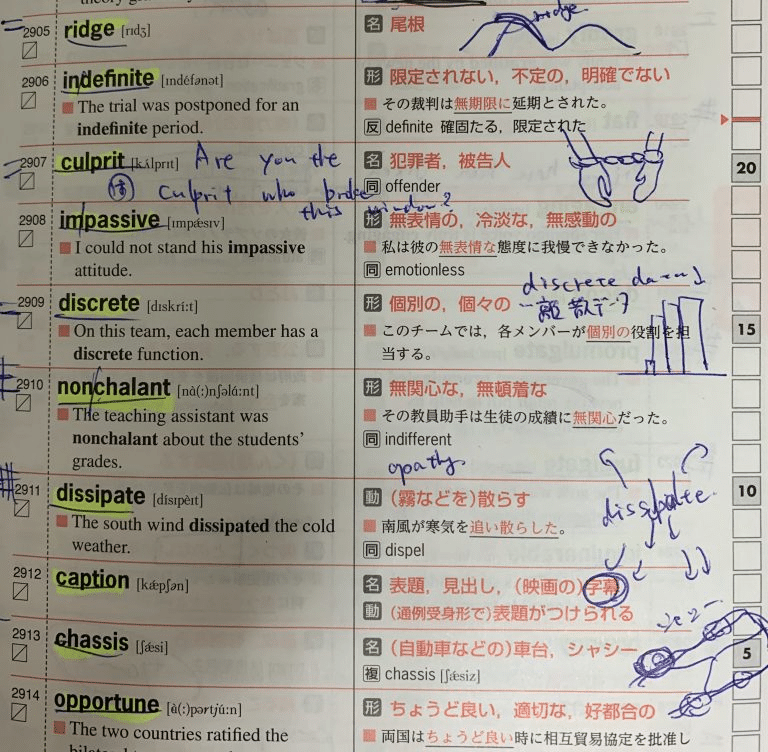 2905 ridge [rɪdʒ] 名 尾根 ridge
2906 indefinite [ɪndéfənət] 形 限定されない，不定の，明確でない
The trial was postponed for an その裁判は無期限に延期とされた。
indefinite period. 反 definite 確固たる，限定された
20
2907 culprit [kʌ́lprɪt] Are you the 名 犯罪者，被告人
culprit who broke 同 offender
this window?
2908 impassive [ɪmpǽsɪv] 形 無表情の，冷淡な，無感動の
I could not stand his impassive 私は彼の無表情な態度に我慢できなかった。
attitude. 同 emotionless
discrete data
離散データ
2909 discrete [dɪskríːt] 形 個別の，個々の
On this team, each member has a このチームでは，各メンバーが個別の役割を担
discrete function. 当する。
15
2910 nonchalant [nà(ː)nʃəláːnt] 形 無関心な，無頓着な
The teaching assistant was その教員助手は生徒の成績に無関心だった。
nonchalant about the students' 同 indifferent
grades. apathy
2911 dissipate [dísɪpèɪt] 動 (霧などを)散らす dissipate
The south wind dissipated the cold 南風が寒気を追い散らした。
weather. 同 dispel
10
2912 caption [kǽpʃən] 名 表題，見出し，(映画の)字幕
動 (通例受身形で)表題がつけられる
シャシー
2913 chassis [ʃǽsi] 名 (自動車などの)車台，シャシー
複 chassis [ʃǽsiz]
5
2914 opportune [à(ː)pərtjúːn] 形 ちょうど良い，適切な，好都合の
The two countries ratified the 両国はちょうど良い時に相互貿易協定を批准し